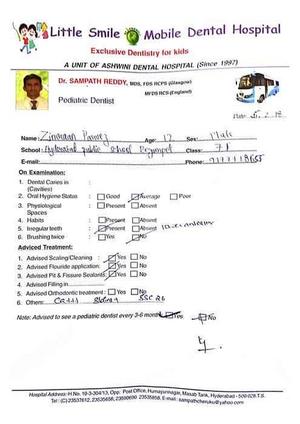 Little Smile Mobile Dental Hospital
Exclusive Dentistry for kids
A UNIT OF ASHWINI DENTAL HOSPITAL (Since 1997)
Dr. SAMPATH REDDY, MDS, FDS RCPS (Glasgow)
MFDS RCS (England)
Pediatric Dentist
Date:
Name: Age: 12 Sex: Male
School: Hyderabad public school Begumpet Class: 7
E-mail: Phone:
On Examination:
1. Dental Caries in (Cavities)
2. Oral Hygiene Status : Good Average Poor
3. Physiological Spaces : Present Absent
4. Habits : Present Absent
5. Irregular teeth : Present Absent
6. Brushing twice : Yes No
Adviced Treatment:
1. Advised Scaling/Cleaning : Yes No
2. Advised Flouride application: Yes No
3. Advised Pit & Fissure Sealants: Yes No
4. Advised Filling in
5. Advised Orthodontic treatment : Yes No
6. Others:
Note: Advised to see a pediatric dentist every 3-6 months Yes No
Hospital Address: H.No. 10-3-304/13, Opp: Post Office, Humayunnagar, Masab Tank, Hyderabad - 500 028. T.S.
Tel: (C) 23537612, 23535658, 23535690 Email: sampathcheruku@yahoo.com